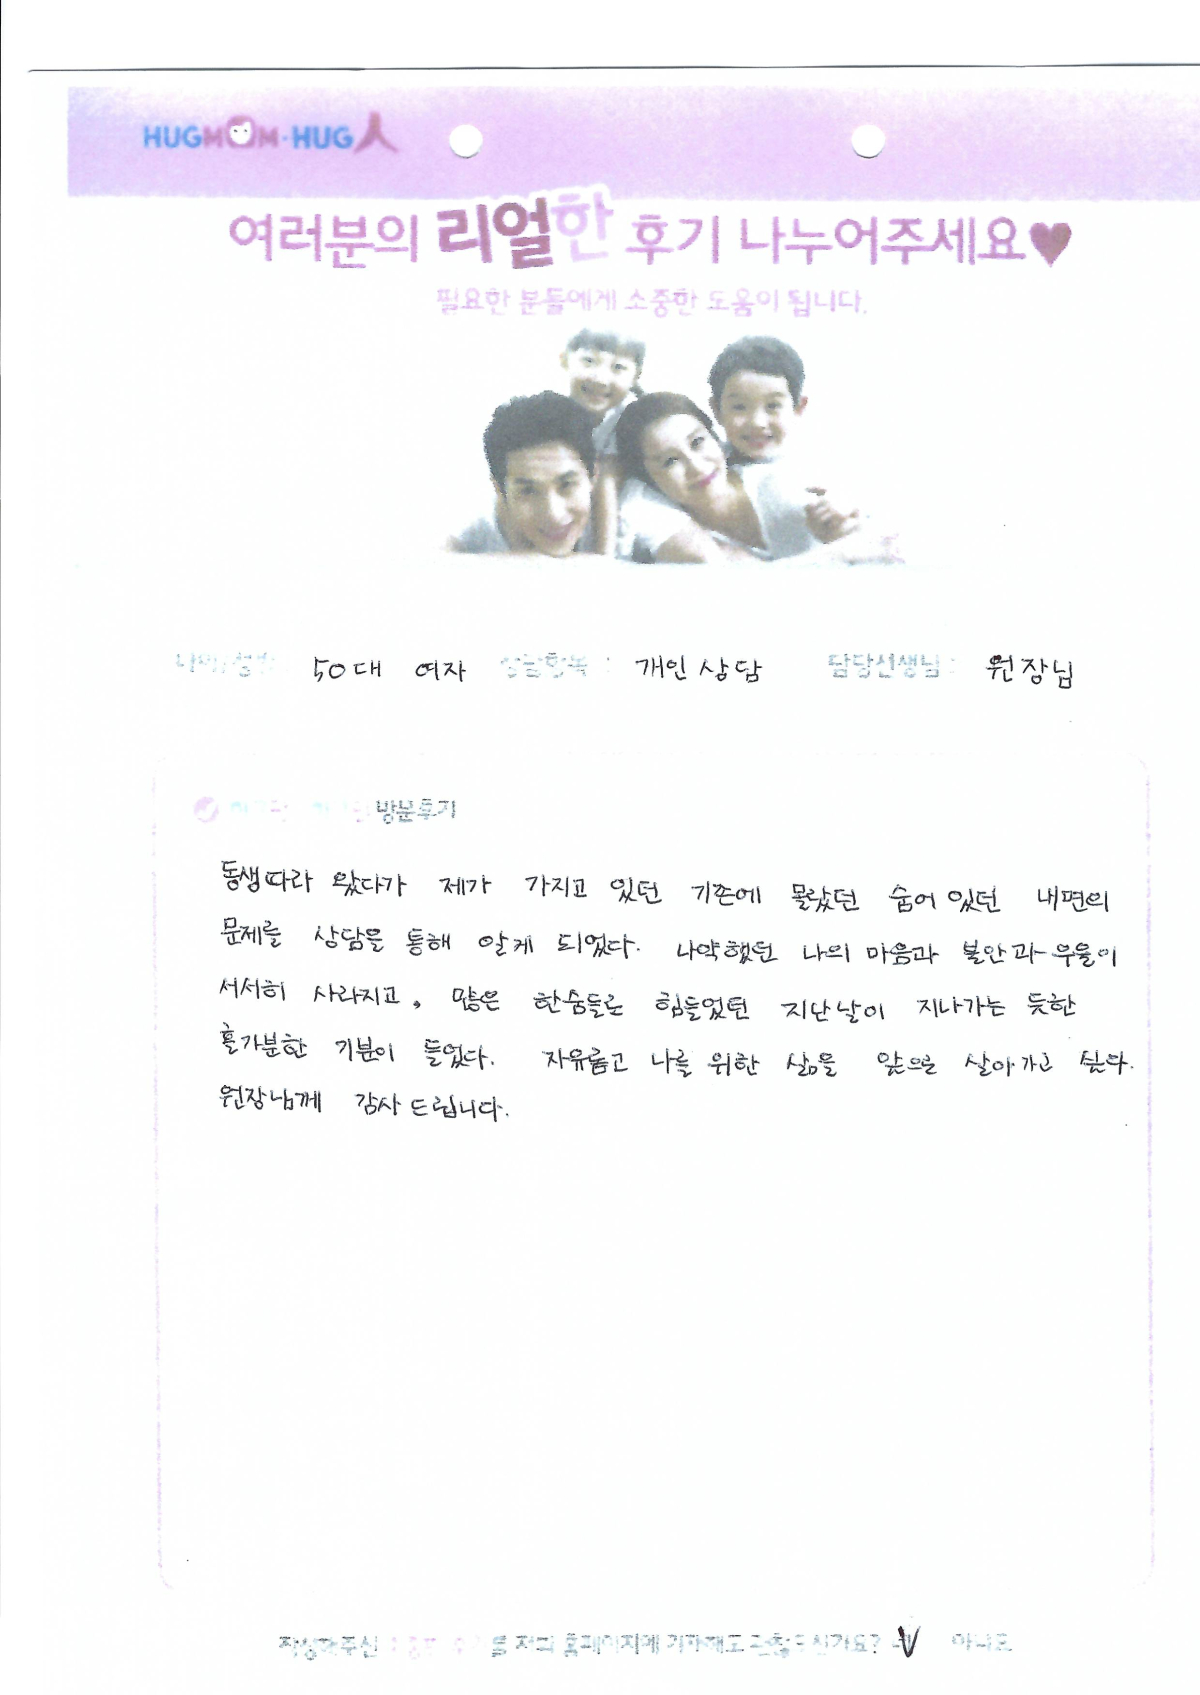 HUGMOM·HUG人
여러분의 리얼한 후기 나누어주세요♥
필요한 분들에게 소중한 도움이 됩니다.
50대 여자 상담항목 : 개인상담 담당선생님 : 원장님
방문후기
동생따라 왔다가 제가 가지고 있던 기존에 몰랐던 숨어있던 내면의
문제를 상담을 통해 알게 되었다. 나약했던 나의 마음과 불안과 우울이
서서히 사라지고, 많은 한숨들로 힘들었던 지난날이 지나가는 듯한
홀가분한 기분이 들었다. 자유롭고 나를 위한 삶을 앞으로 살아가고 싶다.
원장님께 감사드립니다.
작성해주신 를 저희 홈페이지에 기재해도 괜찮으신가요? V 아니요